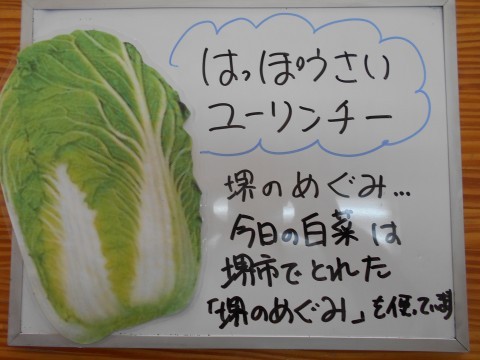 はっぽうさい
ユーリンチー
堺のめぐみ…
今日の白菜は
堺市でとれた
「堺のめぐみ」を使っています